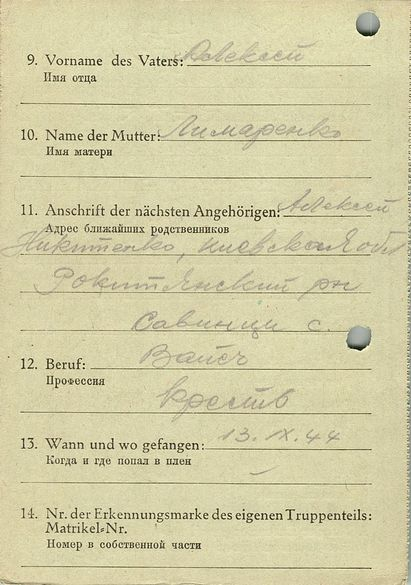 9. Vorname des Vaters: Алексей
Имя отца
10. Name der Mutter: Лимаренко
Имя матери
11. Anschrift der nächsten Angehörigen: Алексей
Адрес ближайших родственников
Никитенко, киевская обл
Рокитянский рн
Савинци с.
12. Beruf:
Профессия
крестьв
13. Wann und wo gefangen: 13. IX. 44
Когда и где попал в плен
14. Nr. der Erkennungsmarke des eigenen Truppenteils:
Matrikel-Nr.
Номер в собственной части